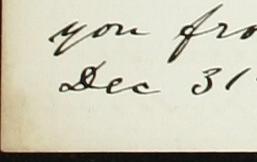 you fro
Dec 31